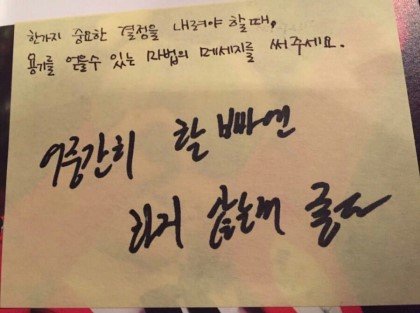 한가지 중요한 결정을 내려야 할 때,
용기를 얻을수 있는 마법의 메세지를 써주세요.
어중간히 할 빠엔
하지 않는게 좋다